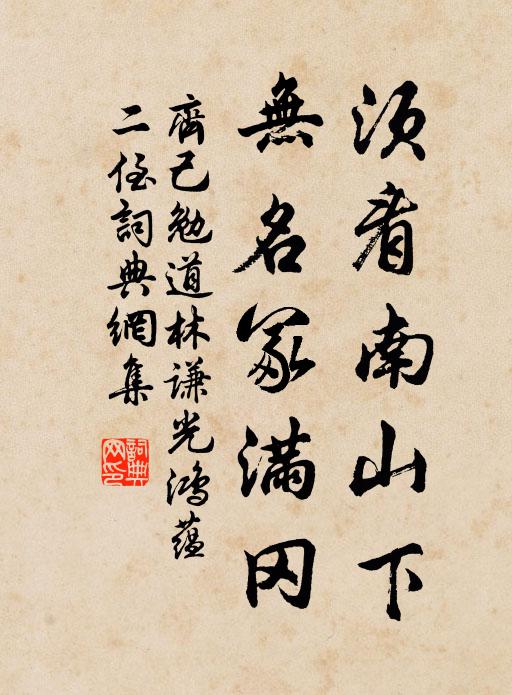 須看南山下
無名冢滿冈
齊己勉道林謙光鴻蘊
二侄詞典網集
詞典网印